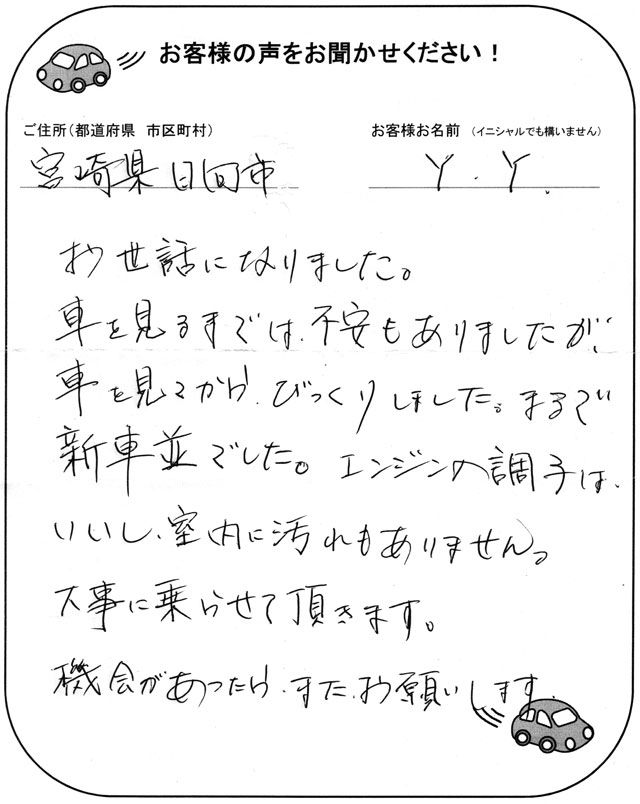 お客様の声をお聞かせください！
ご住所（都道府県　市区町村）
お客様お名前　（イニシャルでも構いません）
宮崎県日向市
Y.Y.
お世話になりました。
車を見るまでは、不安もありましたが、
車を見てから、びっくりしました。まるで
新車並でした。エンジンの調子は、
いいし、室内に汚れもありません。
大事に乗らせて頂きます。
機会があったら、また、お願いします。